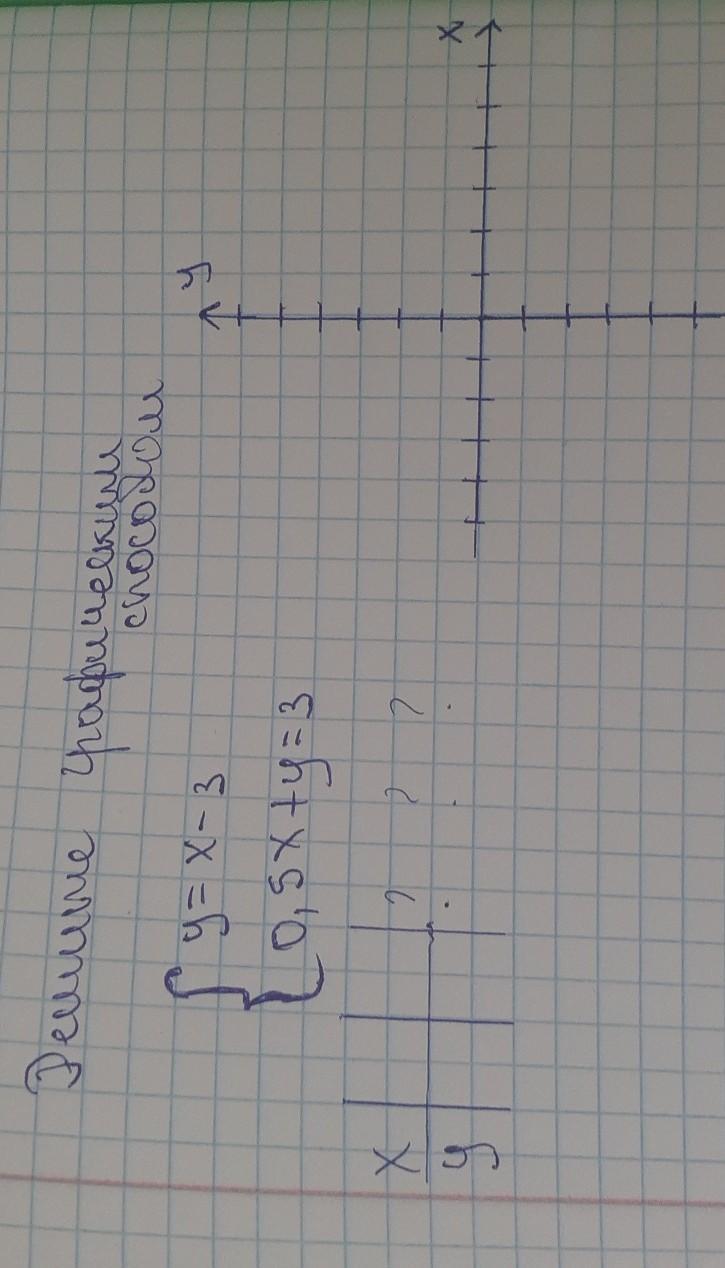 Решите графическим
способом
{ y = x - 3
0,5x + y = 3
x
y
? ? ?
y
x